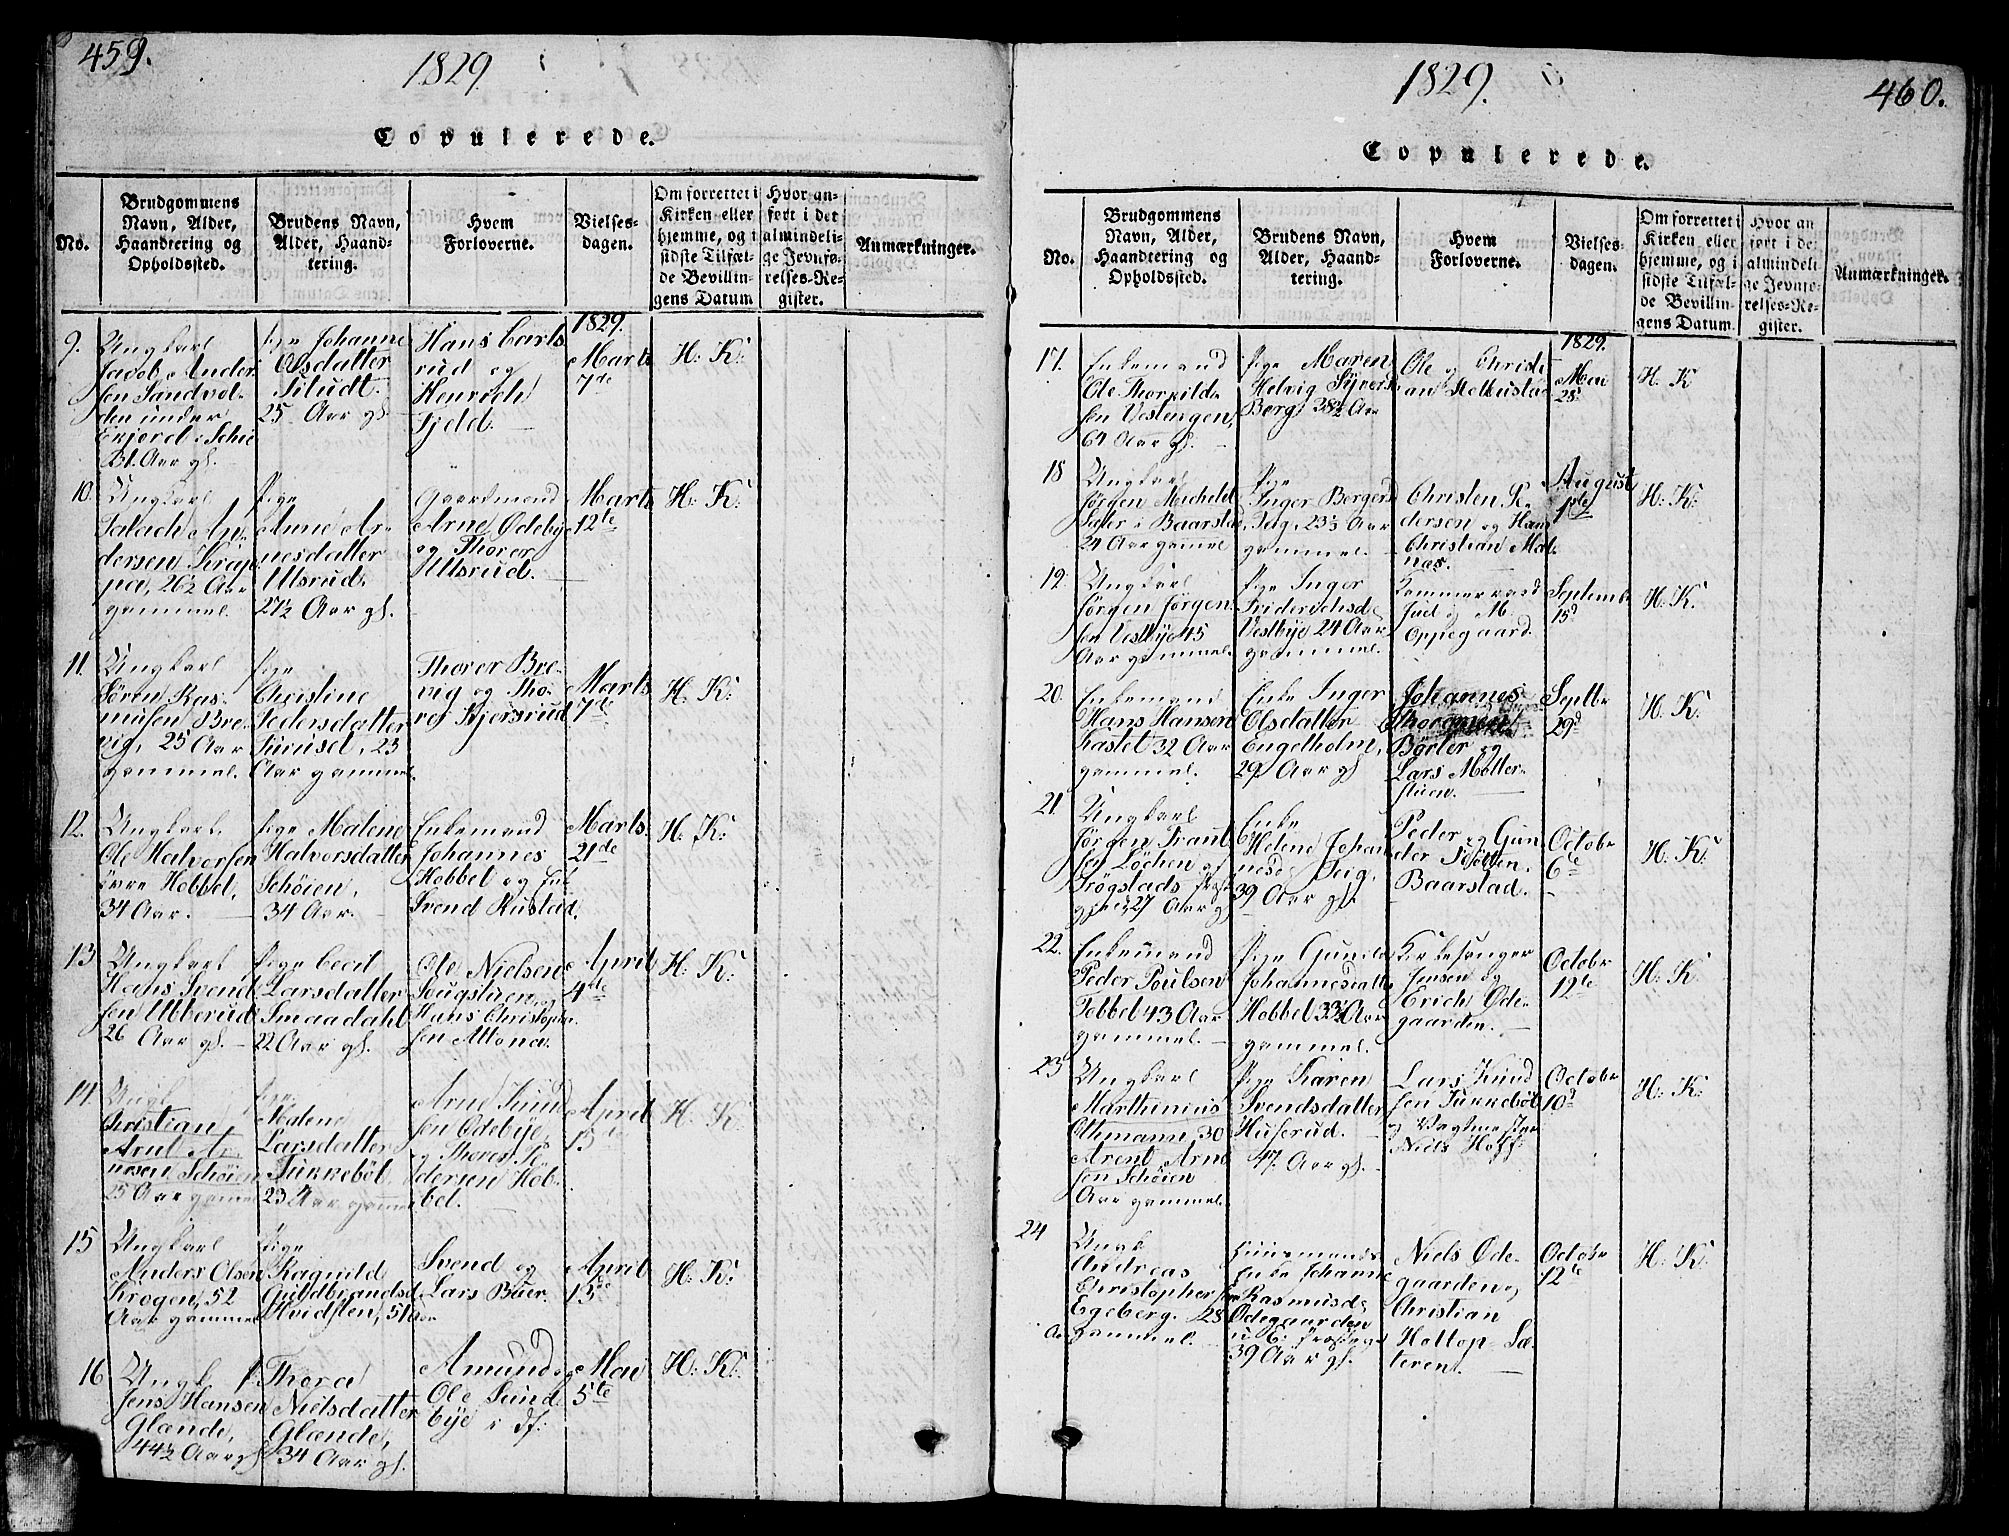 459.
1829.
Copulerede.
No.
Brudgommens
Navn, Alder,
Haandtering og
Opholdssted.
Brudens Navn,
Alder, Haand-
tering.
Hvem
Forloverne.
Vielses-
dagen.
Om forrettet i
Kirken eller
hjemme, og i
sidste Tilfæl-
de Bevillin-
gens Datum
Hvor an-
ført i det
almindeli-
ge Jevnfø-
relses-Re-
gister.
Anmærkninger.
9.
Ungkarl
Jacob Ander-
sen Sandvol-
den under
i Schie
31. Aar gl.
Pige Johanne
Olsdatter
25 Aar gl.
Hans Carls
rud og
Henrich
Fjeld.
1829.
Marts
7de
H: K:
10.
Ungkarl
An-
dersen Krap
26½ Aar
gammel.
Pige
Anne Ar-
nesdatter
Ullsrud.
27½ Aar gl.
Gaardmand
Arne Ødebye
og Thorer
Ullsrud.
Marts
12te
H: K:
11.
Ungkarl
Søren Ras-
musen Bre-
vig, 25 Aar
gammel.
Pige
Christine
Pedersdatter
23
Aar gammel.
Thorer Bre-
vig og Tho-
rer Kjersrud
Marts
7de
H: K:
12.
Ungkarl
Ole Halvorsen
övre Hobbel,
34 Aar.
Pige Malene
Halvorsdatter
Schöien,
34 Aar.
Enkemand
Johannes
Hobbel og
Svend Rustad.
Marts.
21de
H: K:
13
Ungkarl
Hans Svend
sen Ubberud
26 Aar gl.
Pige Cecil
Larsdatter
Smaadahl
22 Aar gl.
Ole Nielsen
Sougstuen og
Hans Christophe
sen Altona.
April
4de
H: K:
14
Ungk
Christian
Arnt Ar
nesen Schöien
25 Aar gamme
Pige
Malene
Larsdatter
Tukkeböl
23 Aar gamme
Arne Knud
sen Ödebye
og Thorer Pe
dersen Hob-
bel.
April
13de
H: K:
15
Ungkarl
Anders Olsen
Krogen, 52
Aar gammel
Pige
Ragnild
Guldbrandsd.
Hvidsten, 51 Aar
Svend og
Lars Buer.
April
13de
H: K:
16
Ungk
Jens Hansen
Glænde,
44½ Aar gl
P. Thora
Nielsdatter
Glænde,
34 Aar gl.
Amund og
Ole Sund
bye i
Mai
5te
H: K:
1829.
460.
Copulerede.
No.
Brudgommens
Navn, Alder,
Haandtering og
Opholdssted.
Brudens Navn,
Alder, Haand-
tering.
Hvem
Forloverne.
Vielses-
dagen.
Om forrettet i
Kirken eller
hjemme, og i
sidste Tilfæl-
de Bevillin-
gens Datum.
Hvor an
ført i de
almindeli
ge Jevnfø-
relses-Re-
gister.
Anmærkninger.
17.
Enkemand
Ole Thorkild
sen Vestengen,
64 Aar gl.
Pige Maren
Helvig Syvers
Berg 38½ Aar
Ole og Christi
an
1829.
Mai
28
H. K
18
Ungkarl
Jörgen Michels
Sæter i Baarstad,
24 Aar gammel
Pige
Inger Bergers
23½ Aar
gammel.
Christen Pe-
dersen og Hans
Christian Mal-
næs.
August
1ste
H: K:
19.
Ungkarl
Jörgen Jörgen-
sen Vestbye 45
Aar gammel.
Pige Inger
Friderichsd.
Vestbye 24 Aar
gammel.
Kammerraad
Juel og M.
Oppegaard.
Septemb
15d
H: K:
20.
Enkemand
Hans Hansen
Kastet 32 Aar
gammel.
Enke Inger
Olsdatter
Engelholm,
29 Aar gl
Johannes
Börter og
Lars Möller-
stuen.
Septbr
29d
H: K:
21.
Ungkarl
Jörgen
sen Löchen af
Trögstads Præste
gjeld 27 Aar gl
Enke
Helene Johan
nesd.
39 Aar gl.
Peder og Gun
der
Baarstad.
Octobr
6te
H: K:
22.
Enkemand
Peder Poulsen
Tobbel 43 Aar
gammel.
Pige Gunild
Johannesdatter
Hobbel 33½ Aar
gammel.
Kirkesanger
Jensen og
Erich Øde-
gaarden.
Octobr
12te
H: K:
23
Ungkarl
Marthinius
Othmann, 30
Arent Arne
sen Schöien
Aar gammel.
Pige Karen
Svendsdatter
Huserud.
47 Aar gl.
Lars Knud
sen Tukkeböl
og Vagtmester
Niels Hoff
Octobr
10d
H: K:
24
Ungk
Andreas
Christophersen
Egeberg. 28
Aar gammel.
Huusmands
Enke Johanne
Rasmusd.
Ødegaarden
39 Aar gl.
Niels Øde-
gaarden og
Christian
Holtop Sæ-
teren.
Octobr
12te
H: K: